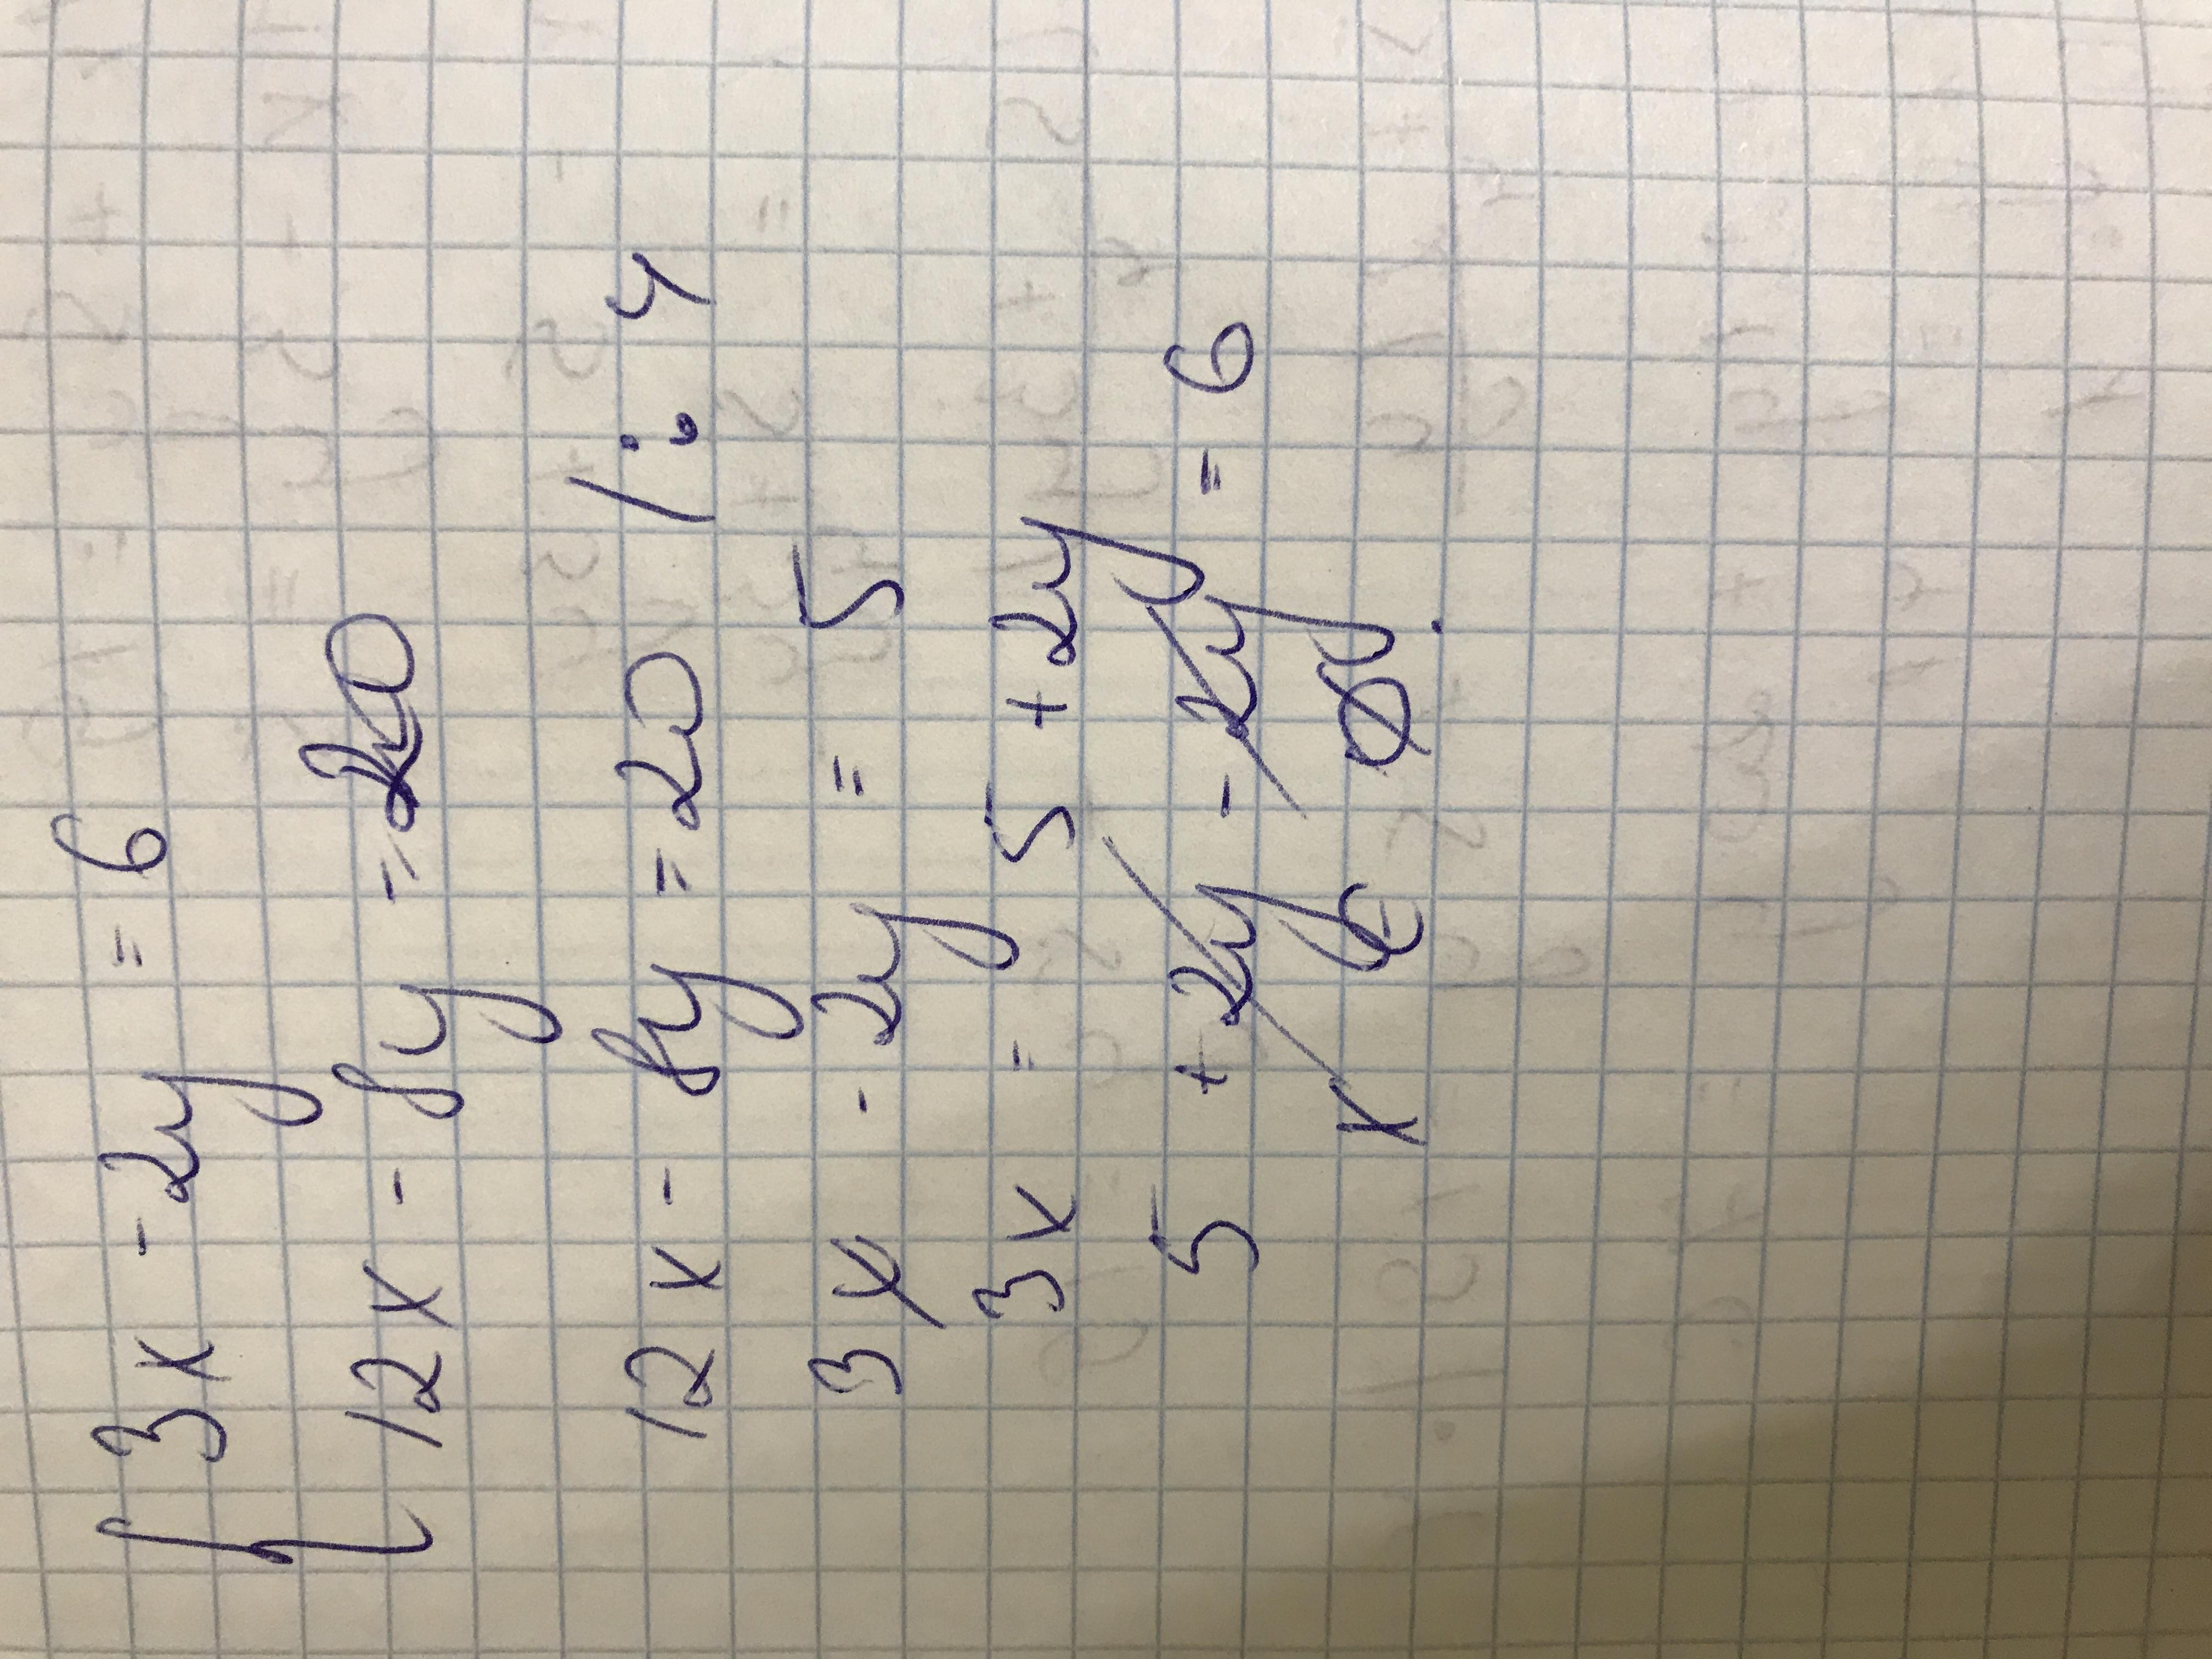 { 3x - 2y = 6
12x - 8y = 20
12x - 8y = 20 / : 4
3x - 2y = 5
3x = 5 + 2y
5 + 2y - 2y = 6
x ∈ Ø.